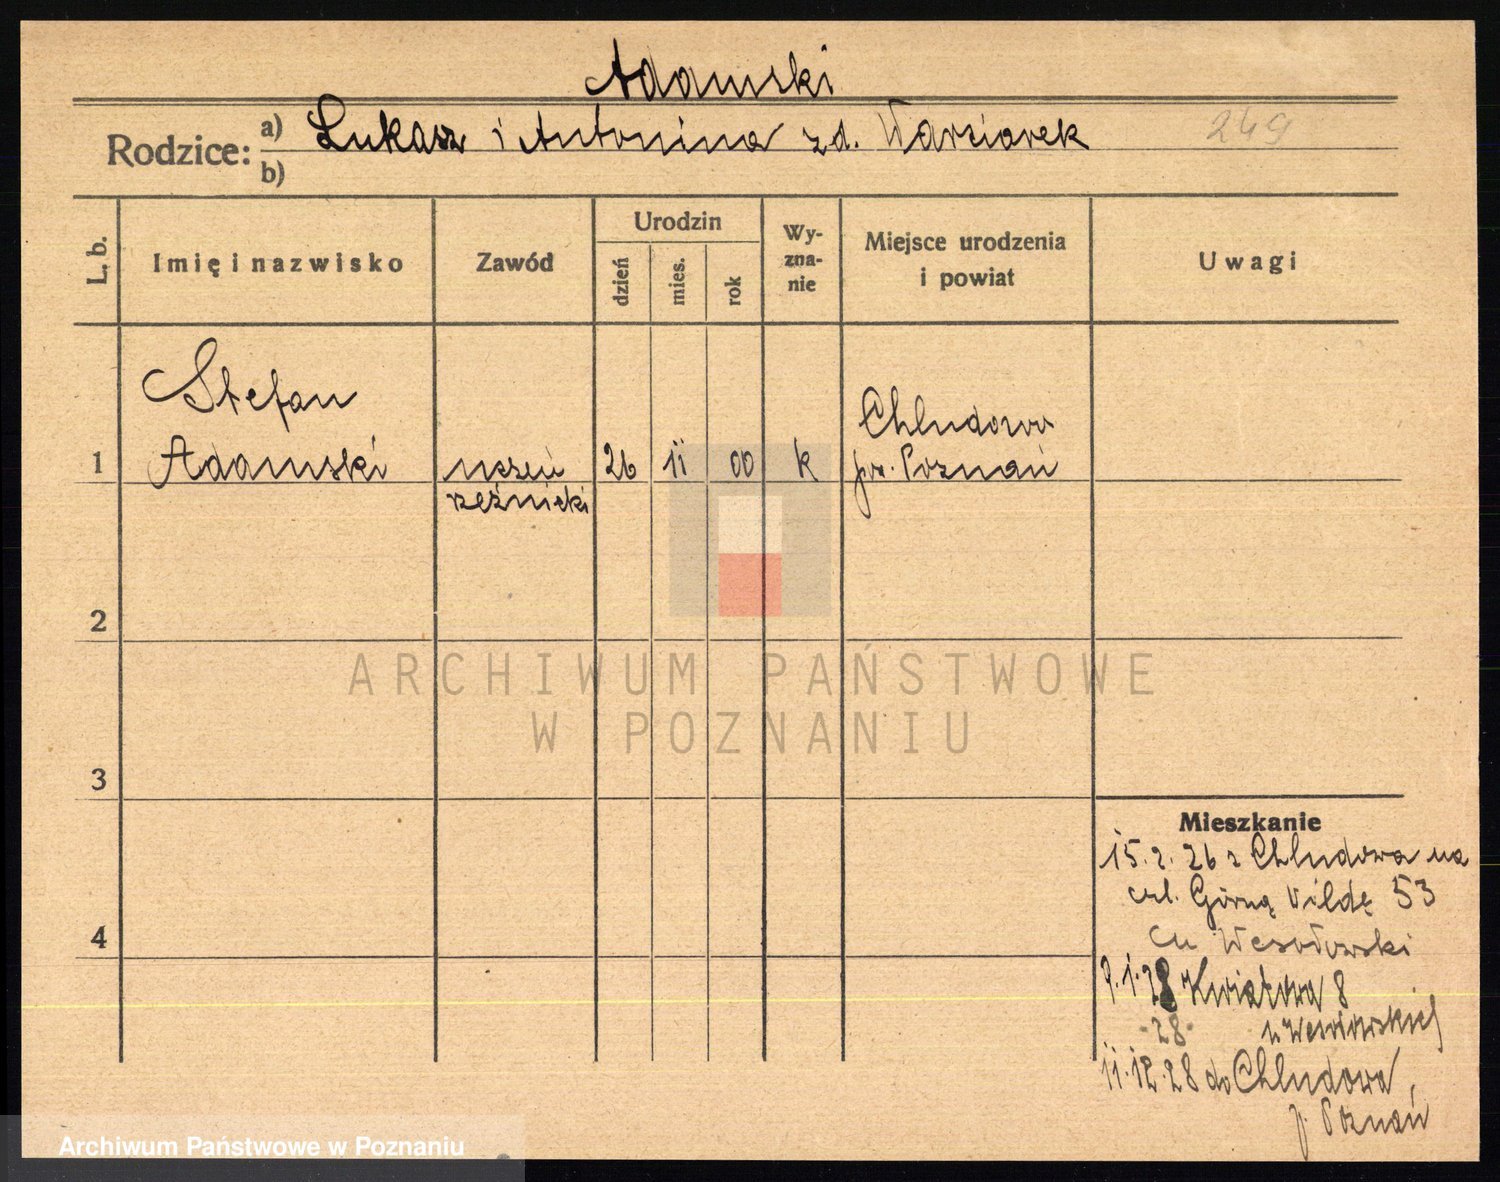 Adamski
Rodzice: a) Łukasz i Antonina zd. Warciarek 249
b)
L. b. Imię i nazwisko Zawód Urodzin dzień mies. rok Wy-zna-nie Miejsce urodzenia i powiat Uwagi
Stefan Chludowo
1 Adamski uczeń 26 11 00 k pow. Poznań
rzeźnicki
2
3
4
ARCHIWUM PAŃSTWOWE
W POZNANIU
Mieszkanie
15.2.26 z Chludowa na
ul. Górną Wildę 53
u Wesołowski
9.1.28 Kwiatowa 8
28 u Wesołowskiej
11.12.28 do Chludowa,
p. Poznań
Archiwum Państwowe w Poznaniu